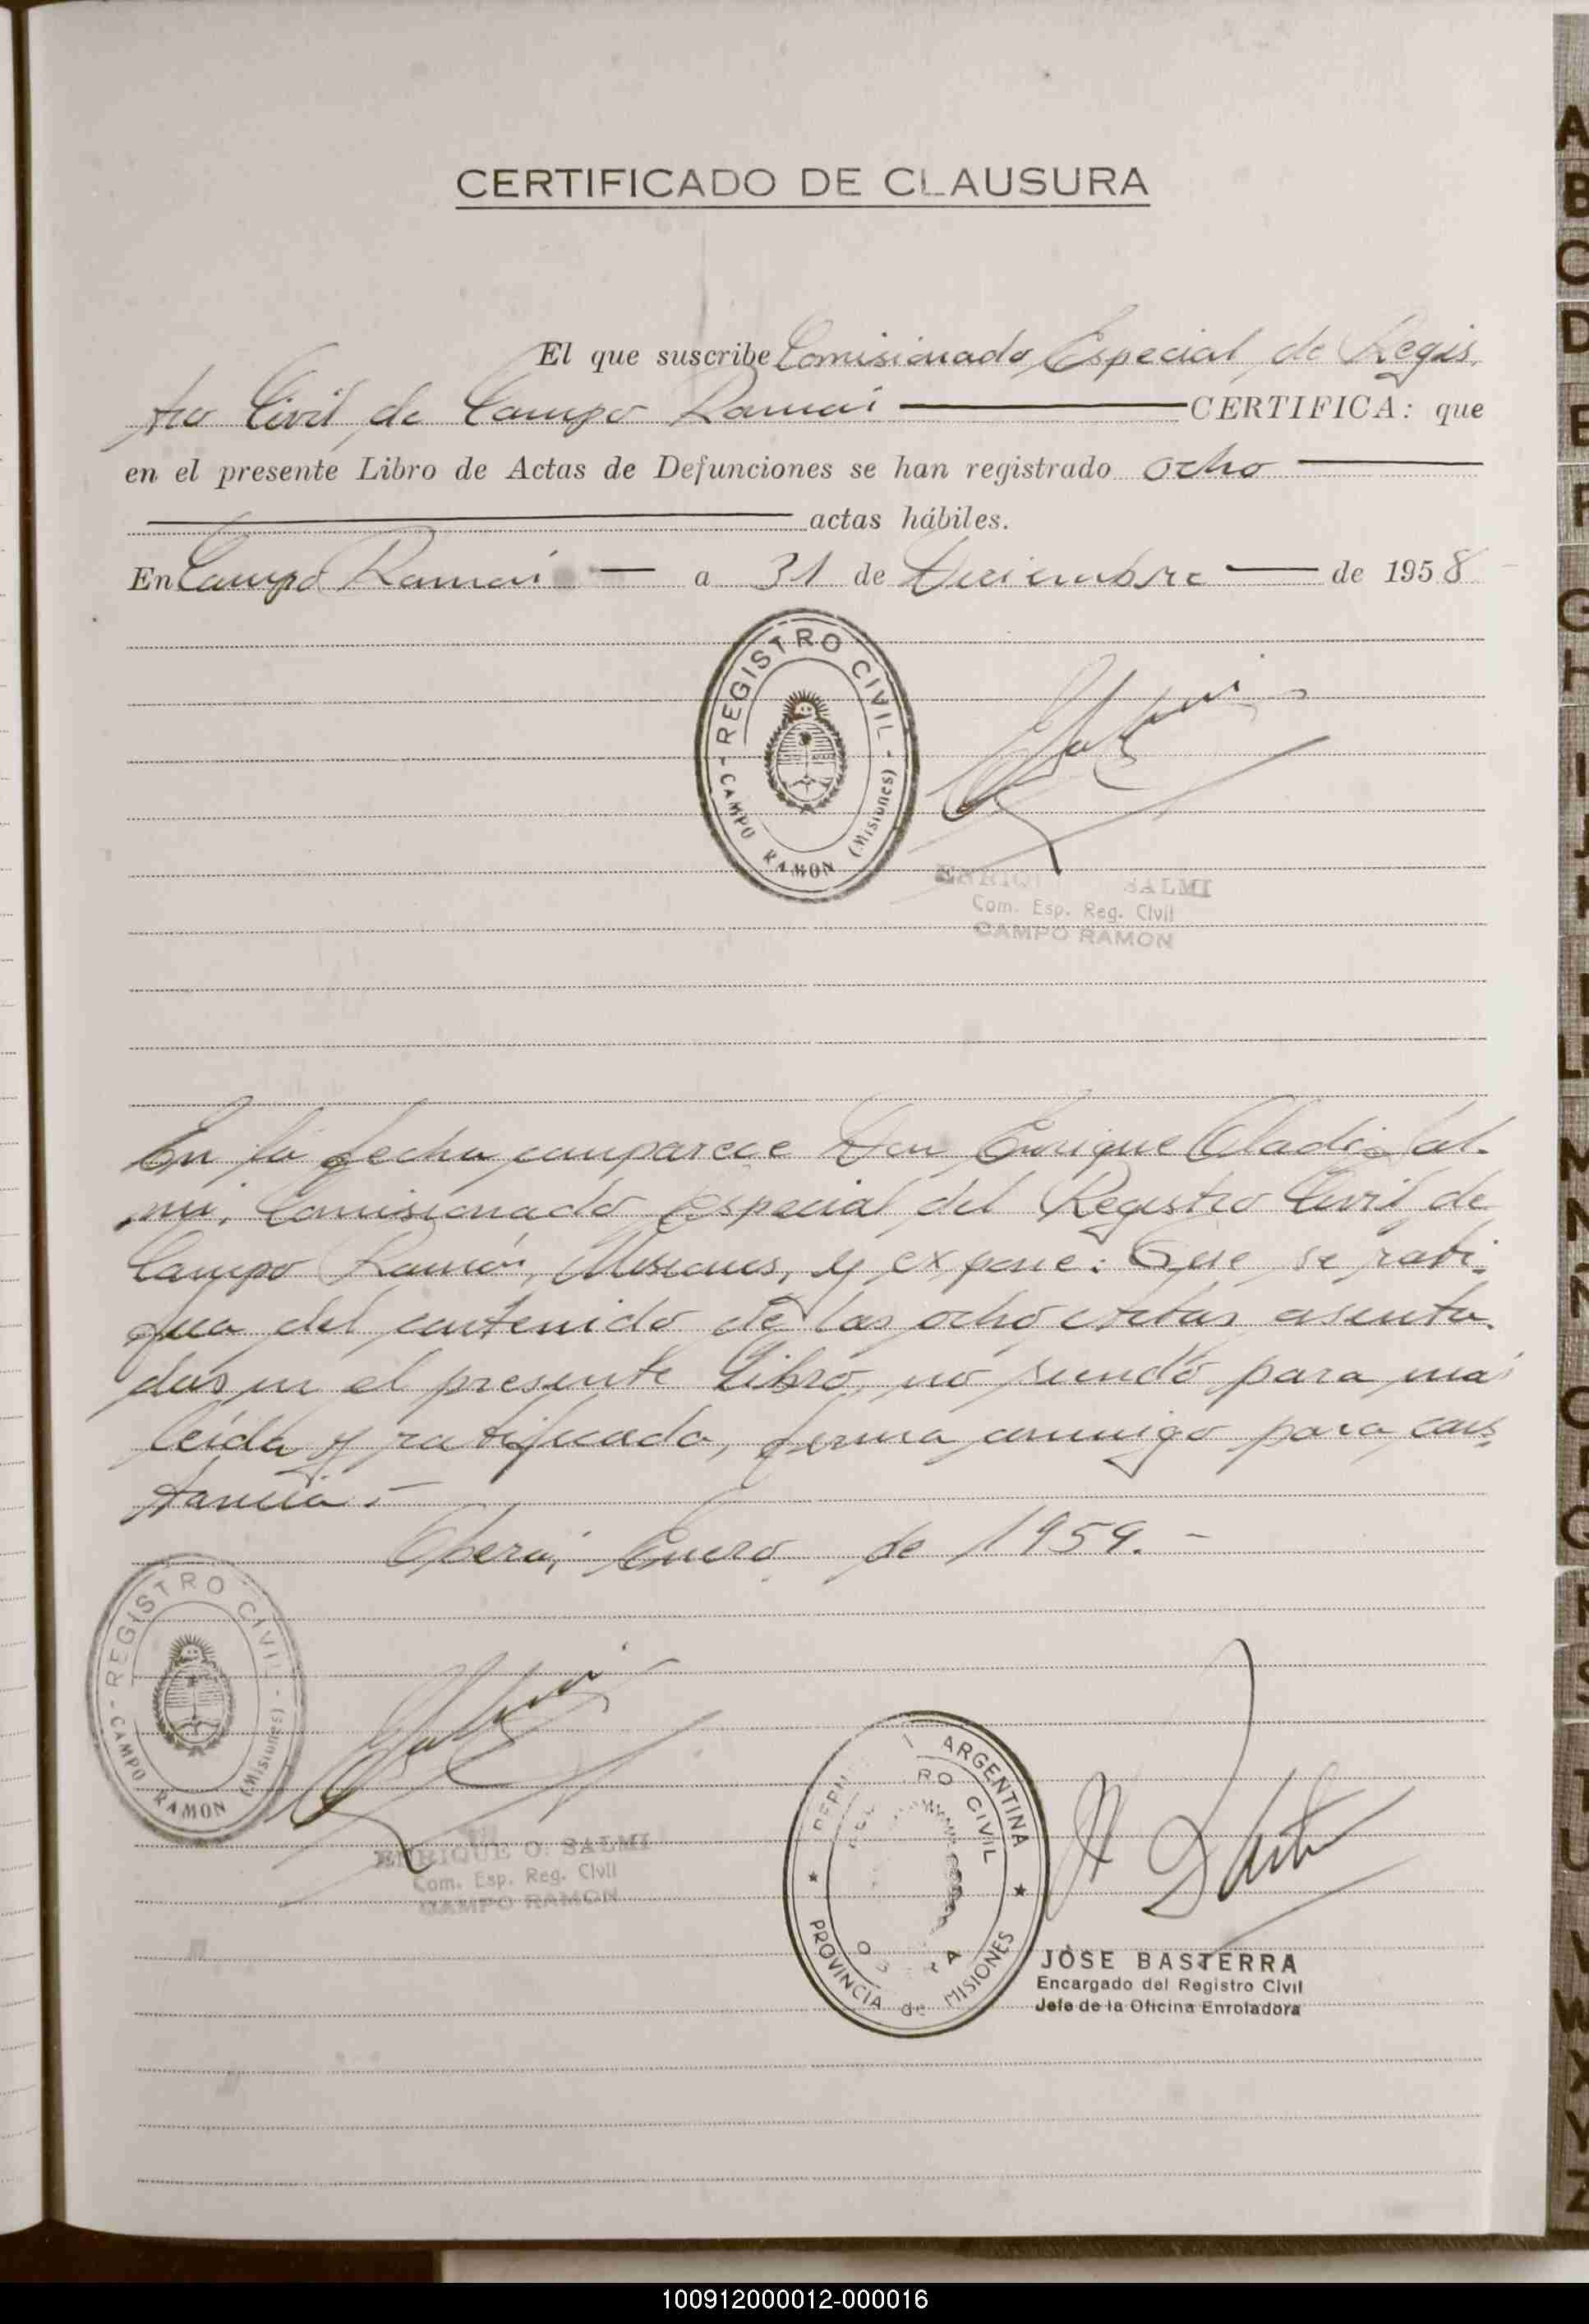 CERTIFICADO DE CLAUSURA
El que suscribe Comisionado Especial de Regis
tro Civil de Campo Ramón CERTIFICA: que
en el presente Libro de Actas de Defunciones se han registrado ocho
actas hábiles.
En Campo Ramón a 31 de Diciembre de 1958
REGISTRO CIVIL
CAMPO RAMON (Misiones)
SALMI
Com. Esp. Reg. Civil
CAMPO RAMON
En la fecha comparece Don Enrique Oladio Sal-
mi, Comisionado Especial del Registro Civil de
Campo Ramón, Misiones, y expone: Que se rati-
fica del contenido de las ocho actas asenta-
das en el presente Libro, no siendo para más
leída y ratificada, firma conmigo para cons-
tancia.-
Oberá, Enero de 1959.-
REGISTRO CIVIL
CAMPO RAMON (Misiones)
ENRIQUE O. SALMI
Com. Esp. Reg. Civil
CAMPO RAMON
ARGENTINA
CIVIL
PROVINCIA de MISIONES
JOSE BASTERRA
Encargado del Registro Civil
Jefe de la Oficina Enroladora
A
B
C
D
E
F
G
H
I
J
K
L
M
N
Ñ
O
P
Q
R
S
T
U
V
W
X
Y
Z
100912000012-000016